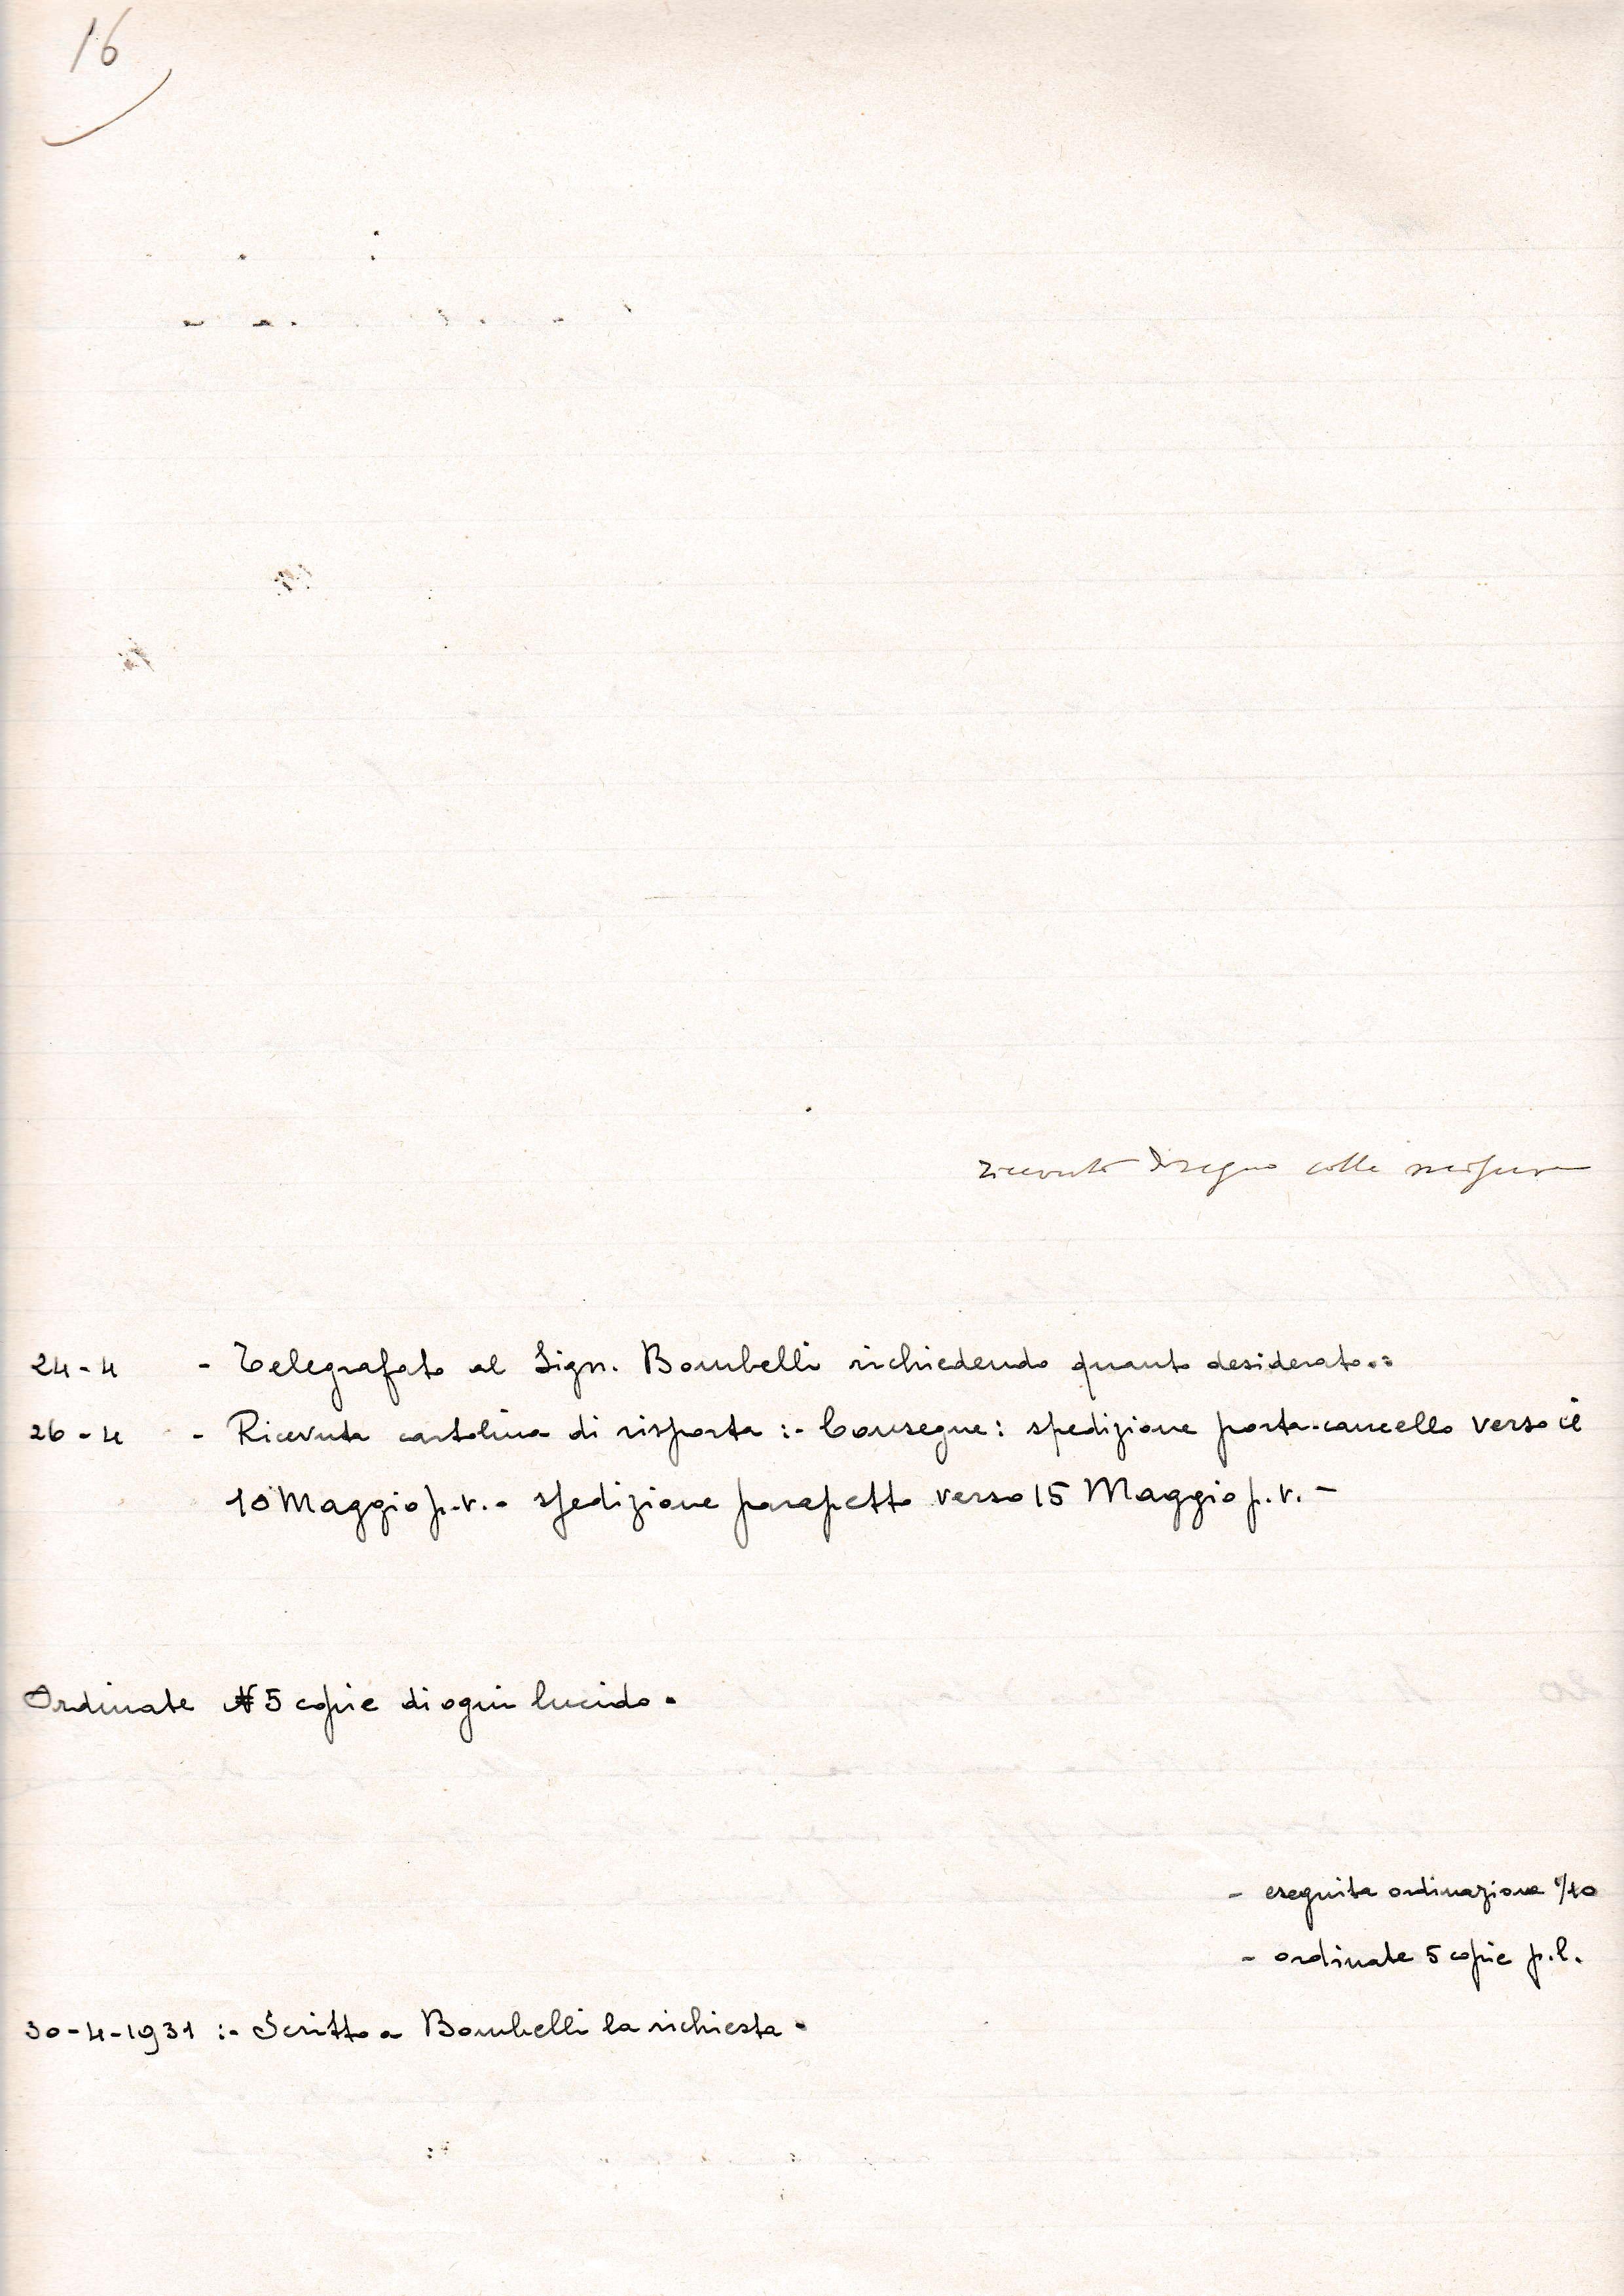 16
ricevuto disegno colle misure
24-4 - Telegrafato al Sign. Bombelli richiedendo quanto desiderato.=
26-4 - Ricevuta cartolina di risposta :- Consegne: spedizione porta-cancello verso il
10 Maggio p.v. - spedizione parapetto verso 15 Maggio p.v. -
Ordinate N 5 copie di ogni lucido -
- eseguita ordinazione
- ordinate 5 copie p.l.
30-4-1931 :- Scritto a Bombelli la richiesta -